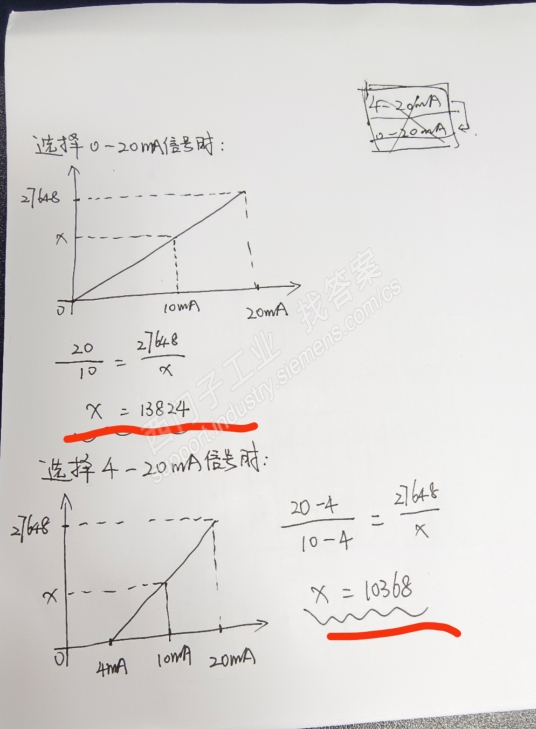 4-20mA
0-20mA
选择0-20mA信号时:
27648
x
0
10mA
20mA
20/10 = 27648/x
x = 13824
西门子工业 找答案
support.industry.siemens.com/cs
选择4-20mA信号时:
27648
x
0
4mA
10mA
20mA
20-4/10-4 = 27648/x
x = 10368